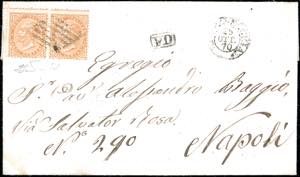 P.D.
25
OTT
70
Egregio
Sr. Avv. Alessandro Baggio
Via Salvator Rosa
No. 290 Napoli